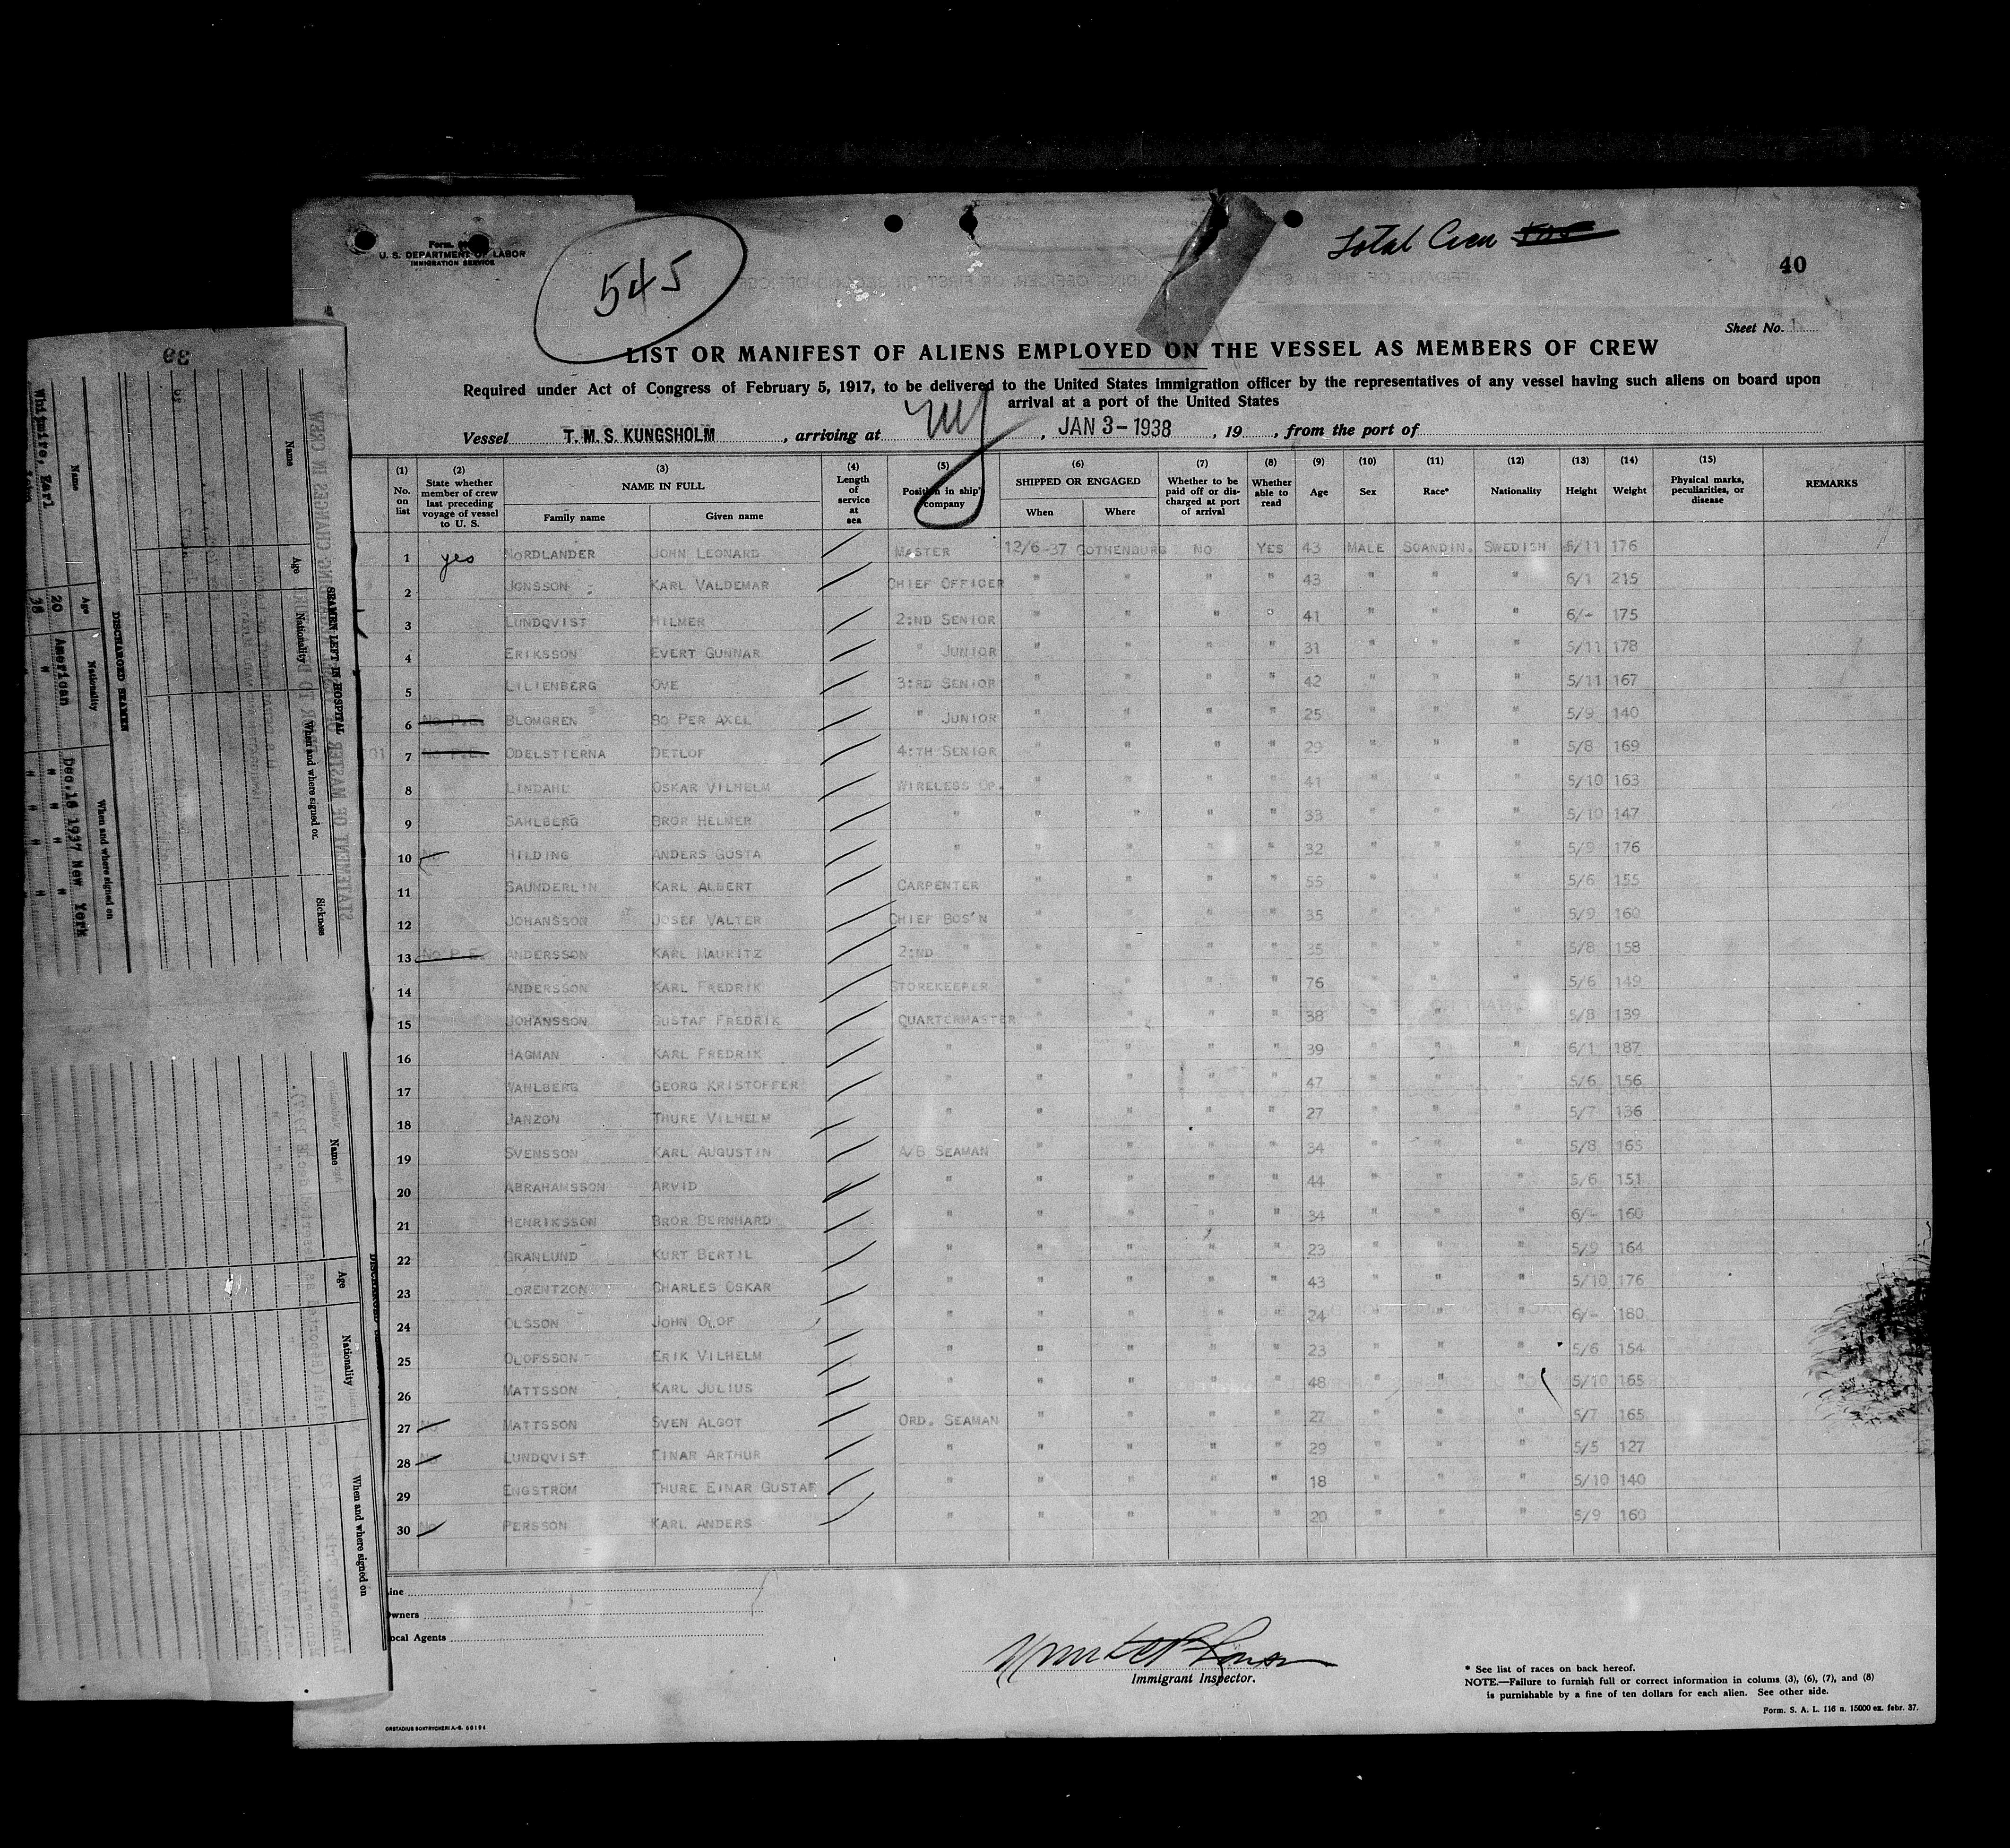 Form.
U. S. DEPARTMENT OF LABOR
IMMIGRATION SERVICE
545
Total Crew
40
Sheet No. 1
LIST OR MANIFEST OF ALIENS EMPLOYED ON THE VESSEL AS MEMBERS OF CREW
Required under Act of Congress of February 5, 1917, to be delivered to the United States immigration officer by the representatives of any vessel having such aliens on board upon
arrival at a port of the United States
Vessel T. M. S. KUNGSHOLM , arriving at NY , JAN 3-1938 , 19 , from the port of
(1) No. on list (2) State whether member of crew last preceding voyage of vessel to U. S. (3) NAME IN FULL Family name Given name (4) Length of service at sea (5) Position in ship's company (6) SHIPPED OR ENGAGED When Where (7) Whether to be paid off or discharged at port of arrival (8) Whether able to read (9) Age (10) Sex (11) Race* (12) Nationality (13) Height (14) Weight (15) Physical marks, peculiarities, or disease REMARKS
1 yes NORDLANDER JOHN LEONARD MASTER 12/6-37 GOTHENBURG NO YES 43 MALE SCANDIN. SWEDISH 5/11 176
2 JONSSON KARL VALDEMAR CHIEF OFFICER " " " " 43 " " " 6/1 215
3 LUNDQVIST HILMER 2:ND SENIOR " " " " 41 " " " 6/- 175
4 ERIKSSON EVERT GUNNAR " JUNIOR " " " " 31 " " " 5/11 178
5 LILIENBERG OVE 3:RD SENIOR " " " " 42 " " " 5/11 167
6 No P.E. BLOMGREN BO PER AXEL " JUNIOR " " " " 25 " " " 5/9 140
7 No P.E. ODELSTIERNA DETLOF 4:TH SENIOR " " " " 29 " " " 5/8 169
8 LINDAHL OSKAR VILHELM WIRELESS OP. " " " " 41 " " " 5/10 163
9 SAHLBERG BROR HELMER " " " " " 33 " " " 5/10 147
10 No HILDING ANDERS GOSTA " " " " " 32 " " " 5/9 176
11 SAUNDERLIN KARL ALBERT CARPENTER " " " " 55 " " " 5/6 155
12 JOHANSSON JOSEF VALTER CHIEF BOS'N " " " " 35 " " " 5/9 160
13 No P.E. ANDERSSON KARL MAURITZ 2:ND " " " " " 35 " " " 5/8 158
14 ANDERSSON KARL FREDRIK STOREKEEPER " " " " 76 " " " 5/6 149
15 JOHANSSON GUSTAF FREDRIK QUARTERMASTER " " " " 38 " " " 5/8 139
16 HAGMAN KARL FREDRIK " " " " " 39 " " " 6/1 187
17 WAHLBERG GEORG KRISTOFFER " " " " " 47 " " " 5/6 156
18 JANZON THURE VILHELM " " " " " 27 " " " 5/7 136
19 SVENSSON KARL AUGUSTIN A/B SEAMAN " " " " 34 " " " 5/8 165
20 ABRAHAMSSON ARVID " " " " " 44 " " " 5/6 151
21 HENRIKSSON BROR BERNHARD " " " " " 34 " " " 6/- 160
22 GRANLUND KURT BERTIL " " " " " 23 " " " 5/9 164
23 LORENTZON CHARLES OSKAR " " " " " 43 " " " 5/10 176
24 OLSSON JOHN OLOF " " " " " 24 " " " 6/- 180
25 OLOFSSON ERIK VILHELM " " " " " 23 " " " 5/6 154
26 MATTSSON KARL JULIUS " " " " " 48 " " " 5/10 165
27 No MATTSSON SVEN ALGOT ORD. SEAMAN " " " " 27 " " " 5/7 165
28 No LUNDQVIST EINAR ARTHUR " " " " " 29 " " " 5/5 127
29 ENGSTRÖM THURE EINAR GUSTAF " " " " " 18 " " " 5/10 140
30 No PERSSON KARL ANDERS " " " " " 20 " " " 5/9 160
ine
wners
ocal Agents
Immigrant Inspector.
* See list of races on back hereof.
NOTE.—Failure to furnish full or correct information in colums (3), (6), (7), and (8)
is punishable by a fine of ten dollars for each alien. See other side.
Form. S. A. L. 116 n. 15000 ex. febr. 37.
39
STATEMENT OF MASTER
CHANGES IN CREW
SEAMEN LEFT IN HOSPITAL
Name Age Nationality When and where signed on Sickness
DISCHARGED SEAMEN
Name Age Nationality When and where signed on
Whitmire, Earl 20 American Dec.18 1937 New York
38 " " " "
Name Age Nationality When and where signed on